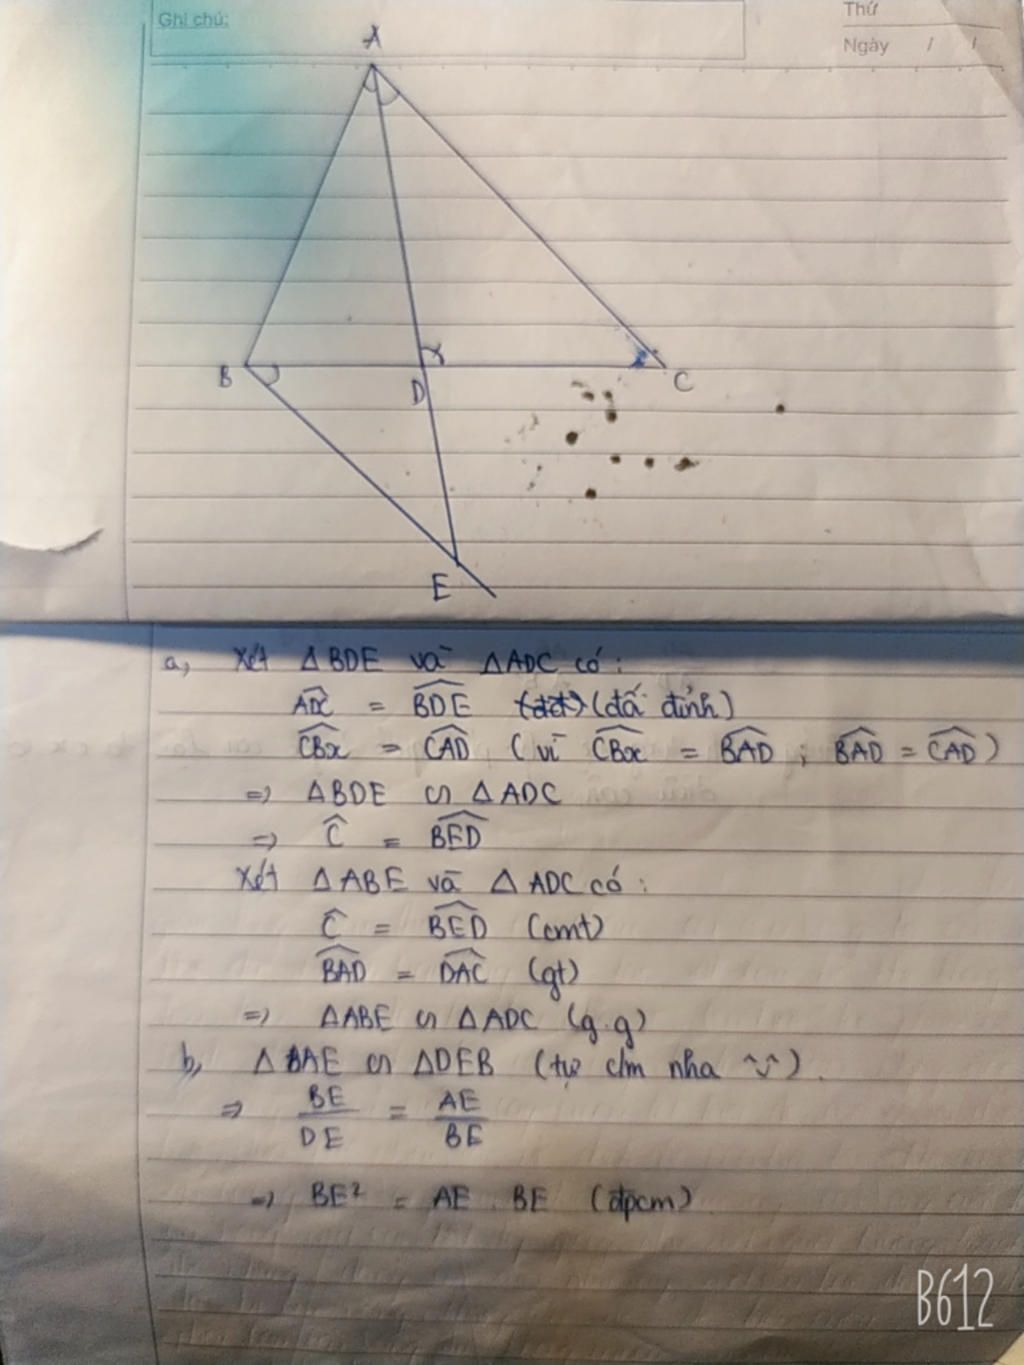 Ghi chú:
Thứ
Ngày / /
A
B
D
x
C
E
a, Xét △BDE và △ADC có:
ADC = BDE (đđ) (đối đỉnh)
CBx = CAD (vì CBx = BAD ; BAD = CAD)
=> △BDE ∽ △ADC
=> Ĉ = BED
Xét △ABE và △ADC có:
Ĉ = BED (cmt)
BAD = DAC (gt)
=> △ABE ∽ △ADC (g.g)
b, △BAE ∽ △DEB (tự c/m nha ^v^).
=> BE/DE = AE/BE
=> BE² = AE . BE (đpcm)
B612